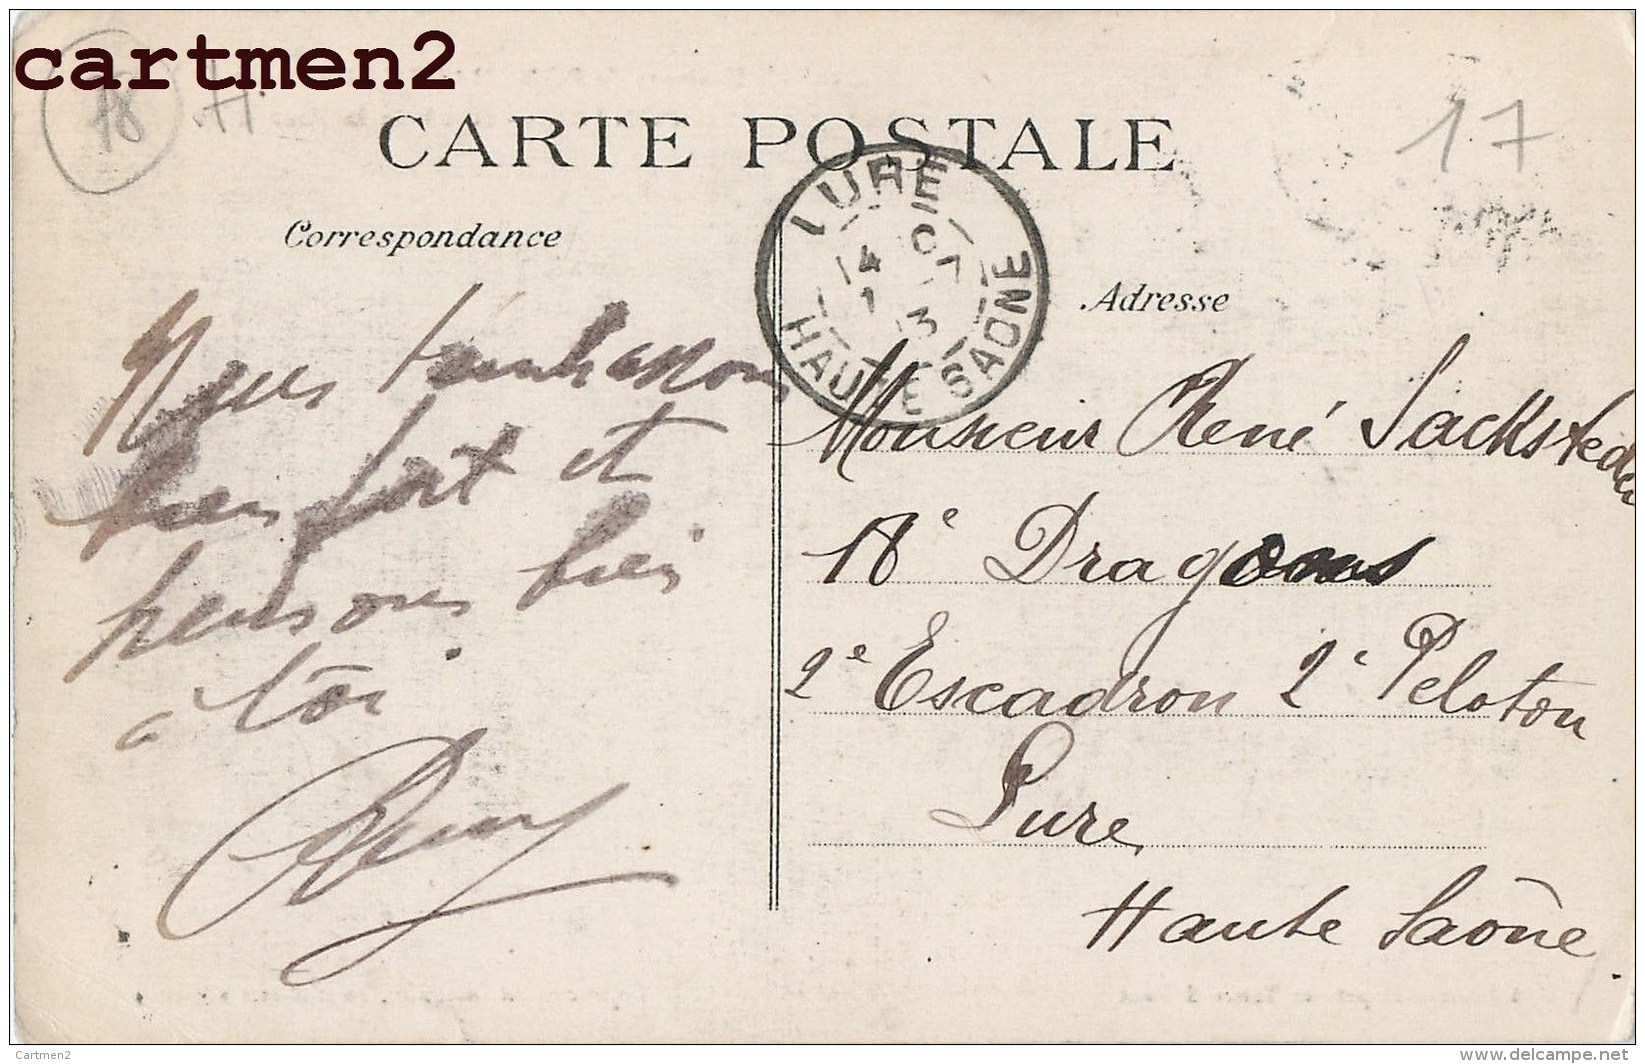 cartmen2
18
H.
17
CARTE POSTALE
Correspondance
LURE
4
1
13
HAUTE SAONE
Adresse
Nous t'embrassons
bien fort et
pensons bien
à toi
Monsieur René Sacksteder
18e Dragons
2e Escadron 2e Peloton
Lure
Haute Saône
Cartmen2
www.delcampe.net